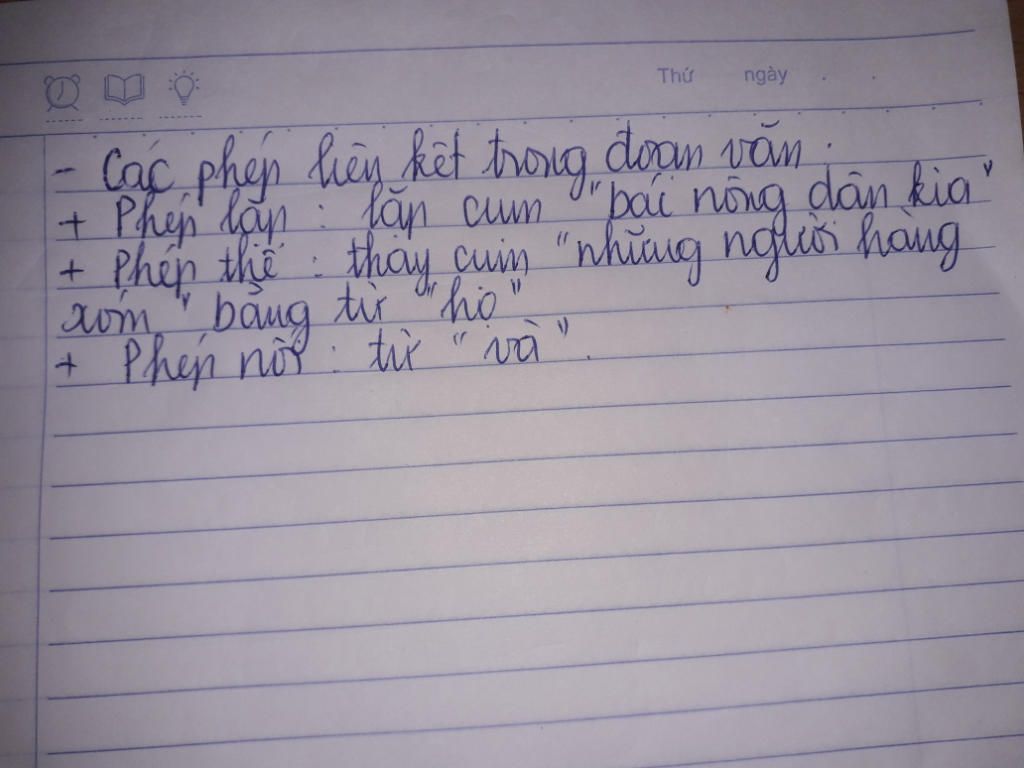 Thứ ngày . .
- Các phép liên kết trong đoạn văn.
+ Phép lặp : lặp cụm "bác nông dân kia"
+ Phép thế : thay cụm "những người hàng
xóm" bằng từ "họ"
+ Phép nối : từ "và".